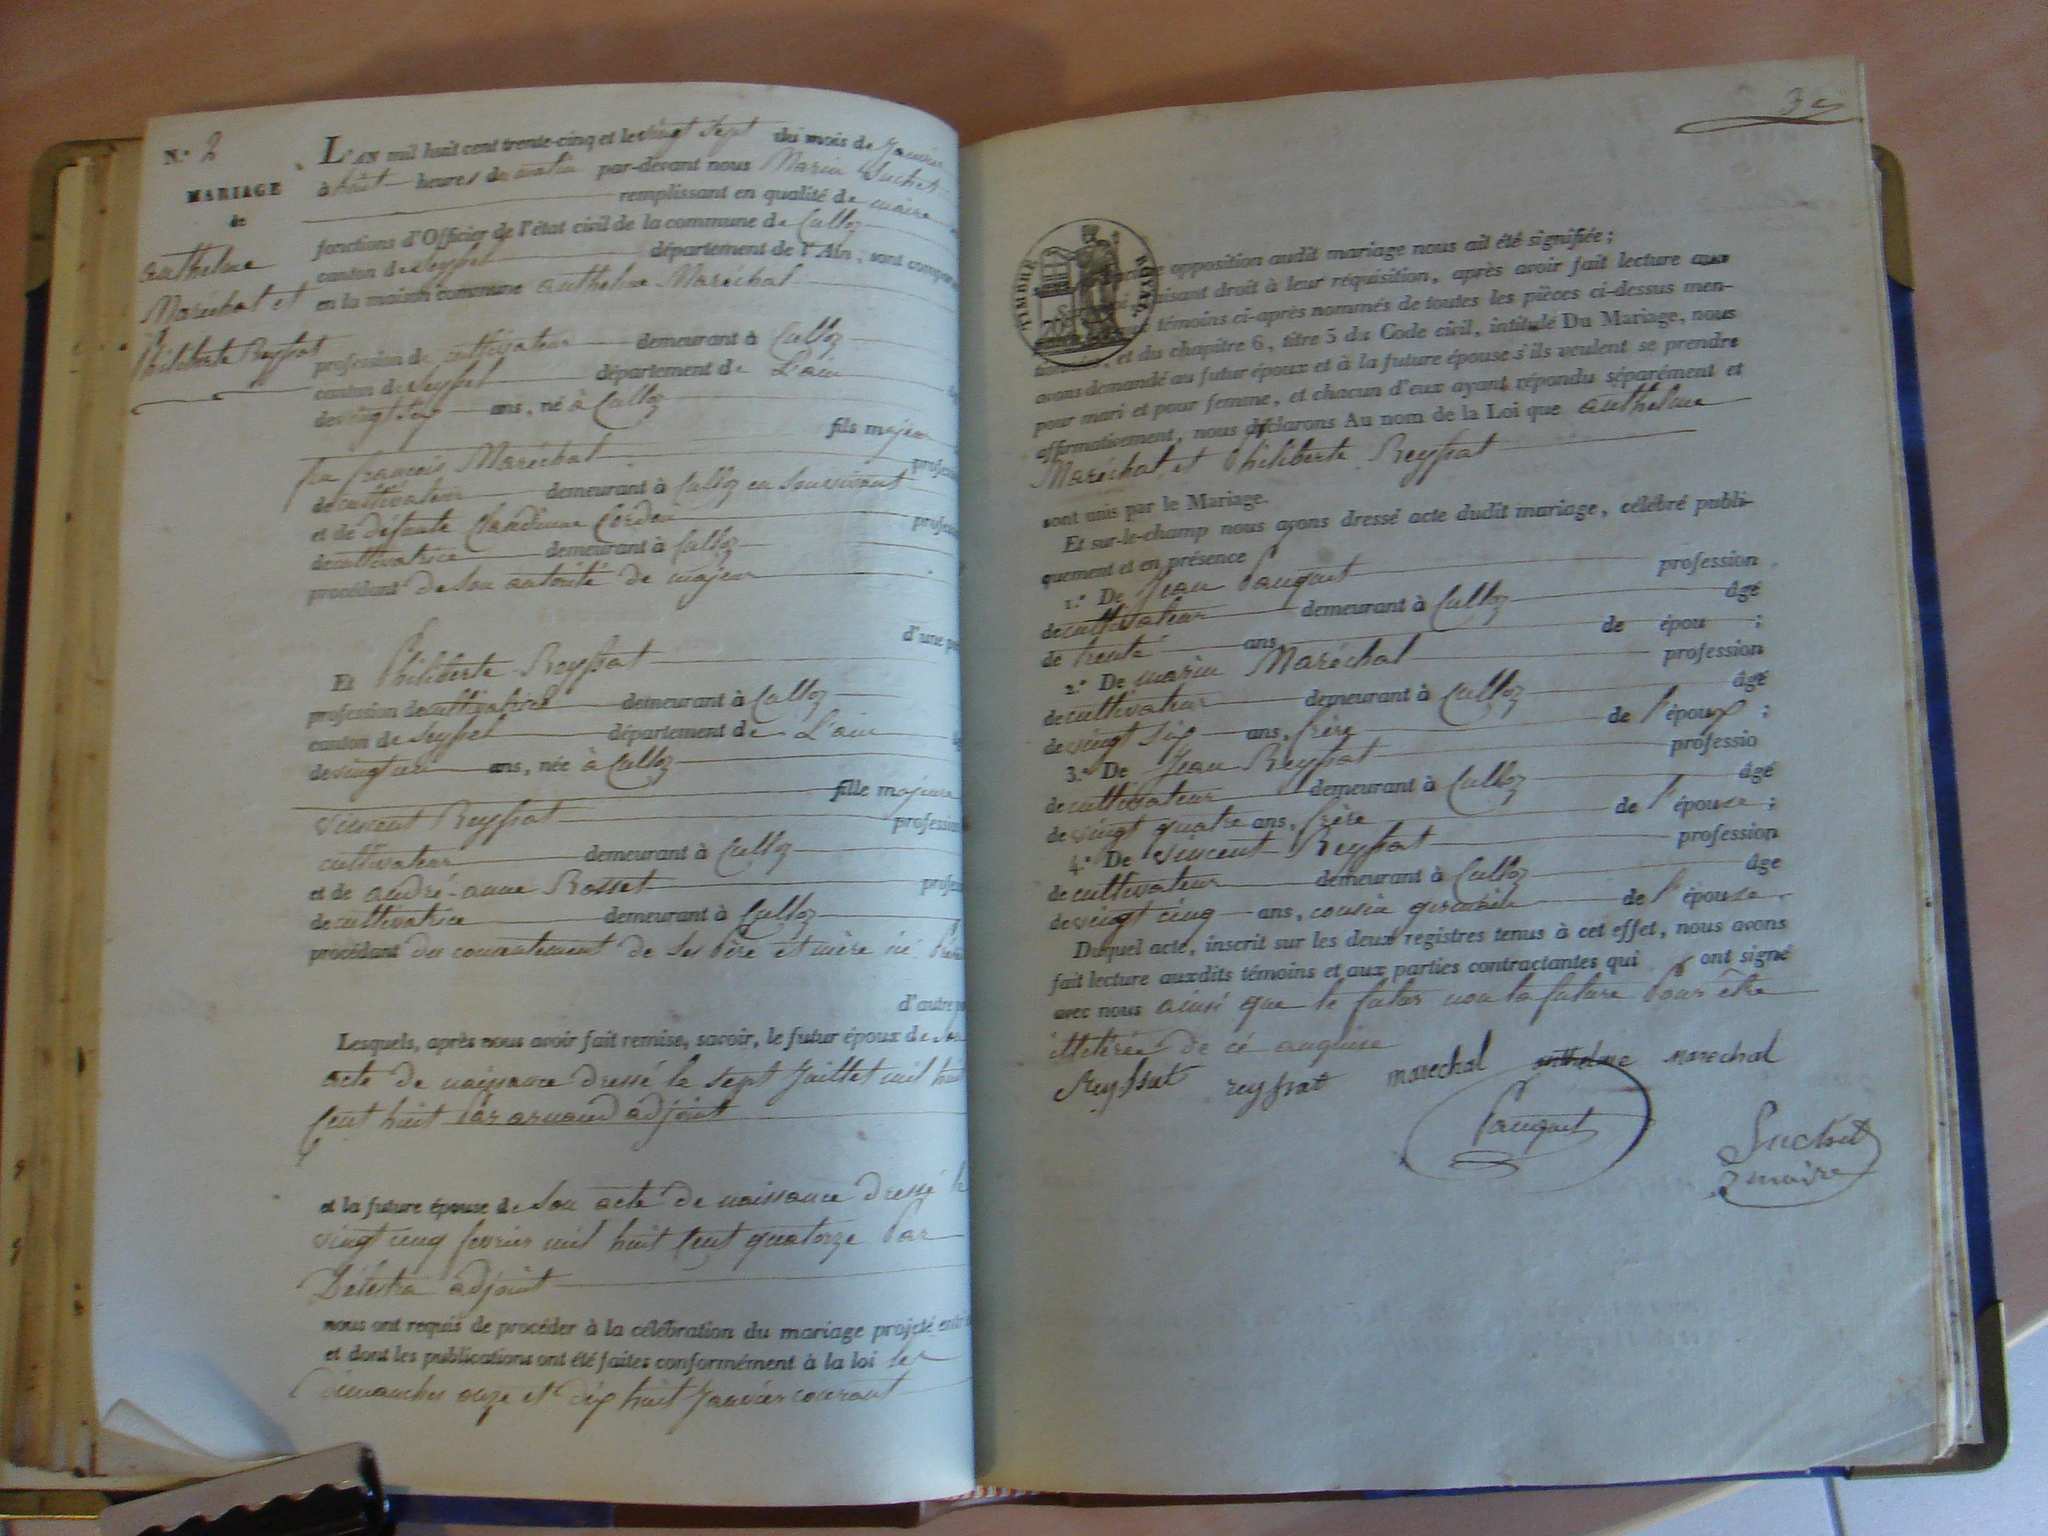 N.° 2
MARIAGE
de
anthelme
Maréchal et
Philiberte Reyssat
L'AN mil huit cent trente-cinq et le vingt sept du mois de Janvier
à huit heures du matin par-devant nous Marin Suchet
remplissant en qualité de maire
fonctions d'Officier de l'état civil de la commune de Culloz
canton de Seyssel département de l'Ain, sont comparus
en la maison commune anthelme Maréchal
profession de cultivateur demeurant à Culloz
canton de Seyssel département de L'ain
de vingt six ans, né à Culloz
fils majeur
feu françois Maréchal
de cultivateur demeurant à Culloz en Sonvivant
et de défunte Claudine Cordon
de cultivatrice demeurant à Culloz
procédant de Son autorité de majeur
d'une part
Et Philiberte Reyssat
profession de cultivatrice demeurant à Culloz
canton de Seyssel département de L'ain
de vingt un ans, née à Culloz
fille majeure
vincent Reyssat profession
cultivateur demeurant à Culloz
et de andré-anne Rosset
de cultivatrice demeurant à Culloz
procédant du consentement de Ses Père et mère
d'autre part
Lesquels, après nous avoir fait remise, savoir, le futur époux de Son
acte de naissance dressé le sept Juillet mil huit
Cent huit Par arnaud adjoint
et la future épouse de Son acte de naissance dressé le
vingt cinq fevrier mil huit Cent quatorze Par
Délestra adjoint
nous ont requis de procéder à la célébration du mariage projeté entre
et dont les publications ont été faites conformément à la loi les
Dimanches onze et dix huit Janvier courant
3
TIMBRE ROYAL
opposition audit mariage nous ait été signifiée;
faisant droit à leur réquisition, après avoir fait lecture aux
témoins ci-après nommés de toutes les pièces ci-dessus men-
tionnées, et du chapitre 6, titre 5 du Code civil, intitulé Du Mariage, nous
avons demandé au futur époux et à la future épouse s'ils veulent se prendre
pour mari et pour femme, et chacun d'eux ayant répondu séparément et
affirmativement, nous déclarons Au nom de la Loi que anthelme
Maréchal et Philiberte Reyssat
sont unis par le Mariage.
Et sur-le-champ nous avons dressé acte dudit mariage, célébré publi-
quement et en présence
1.° De Jean Pauquet profession
de cultivateur demeurant à Culloz âgé
de trente ans de épou ;
2.° De marin Maréchal profession
de cultivateur demeurant à Culloz âgé
de vingt six ans, frère de l'époux ;
3.° De Jean Reyssat professio
de cultivateur demeurant à Culloz âgé
de vingt quatre ans, frère de l'épouse ;
4.° De vincent Reyssat profession
de cultivateur demeurant à Culloz âgé
de vingt cinq ans, cousin germain de l'épouse.
Duquel acte, inscrit sur les deux registres tenus à cet effet, nous avons
fait lecture auxdits témoins et aux parties contractantes qui ont signé
avec nous ainsi que le futur non la future Pour être
illitérée de cé enquise
Reyssat reyssat marechal anthelme marechal
Pauquet
Suchet
maire